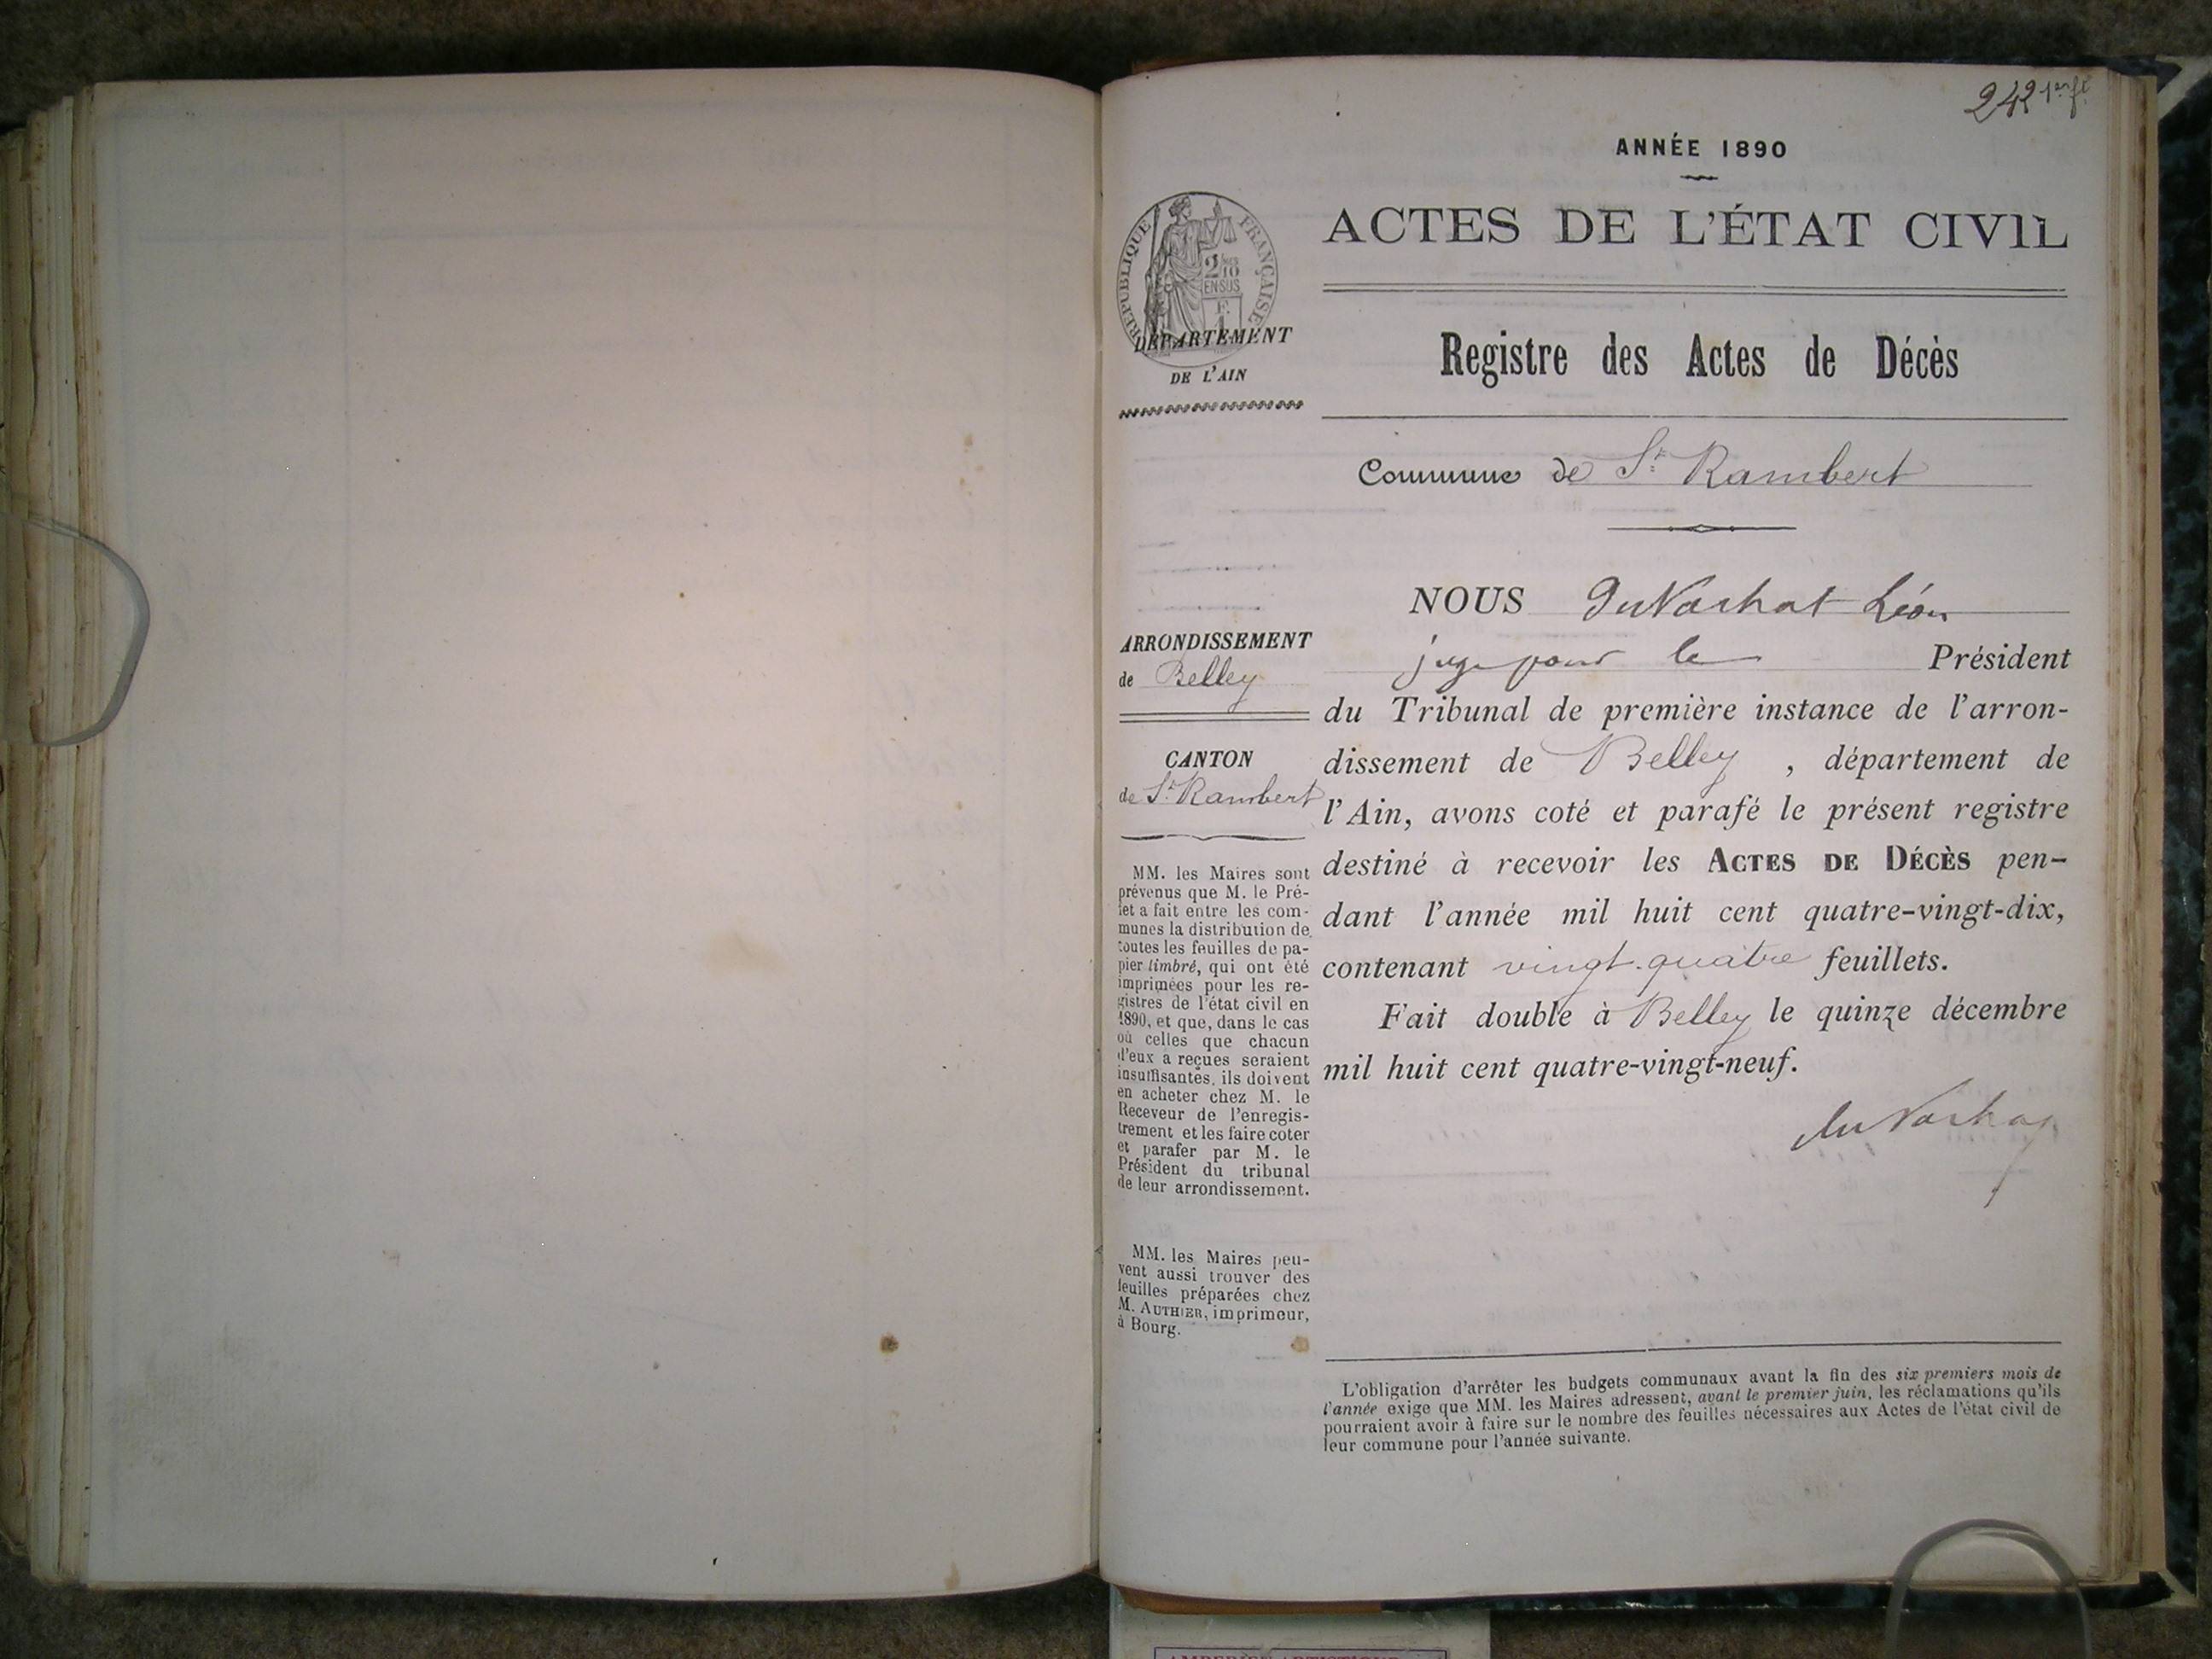 242 1er ft
ANNÉE 1890
ACTES DE L'ÉTAT CIVIL
RÉPUBLIQUE FRANÇAISE
2/10
EN SUS
DÉPARTEMENT
DE L'AIN
Registre des Actes de Décès
Commune de St Rambert
NOUS DuVachat Léon
juge pour le Président
du Tribunal de première instance de l'arron-
dissement de Belley, département de
l'Ain, avons coté et parafé le présent registre
destiné à recevoir les ACTES DE DÉCÈS pen-
dant l'année mil huit cent quatre-vingt-dix,
contenant vingt-quatre feuillets.
Fait double à Belley le quinze décembre
mil huit cent quatre-vingt-neuf.
duVachat
ARRONDISSEMENT
de Belley
CANTON
de St Rambert
MM. les Maires sont
prévenus que M. le Pré-
fet a fait entre les com-
munes la distribution de
toutes les feuilles de pa-
pier timbré, qui ont été
imprimées pour les re-
gistres de l'état civil en
1890, et que, dans le cas
où celles que chacun
d'eux a reçues seraient
insuffisantes, ils doivent
en acheter chez M. le
Receveur de l'enregis-
trement et les faire coter
et parafer par M. le
Président du tribunal
de leur arrondissement.
MM. les Maires peu-
vent aussi trouver des
feuilles préparées chez
M. AUTHIER, imprimeur,
à Bourg.
L'obligation d'arrêter les budgets communaux avant la fin des six premiers mois de
l'année exige que MM. les Maires adressent, avant le premier juin, les réclamations qu'ils
pourraient avoir à faire sur le nombre des feuilles nécessaires aux Actes de l'état civil de
leur commune pour l'année suivante.